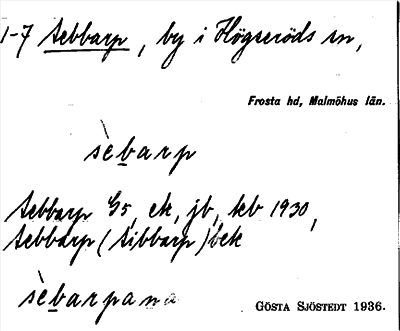 1-7 Sebbarp, by i Högseröds sn,
Frosta hd, Malmöhus län.
sèbarp
Sebbarp G5, ek, jb, kb 1930,
Sebbarp (Sibbarp) bek
sèbarpana
GÖSTA SJÖSTEDT 1936.